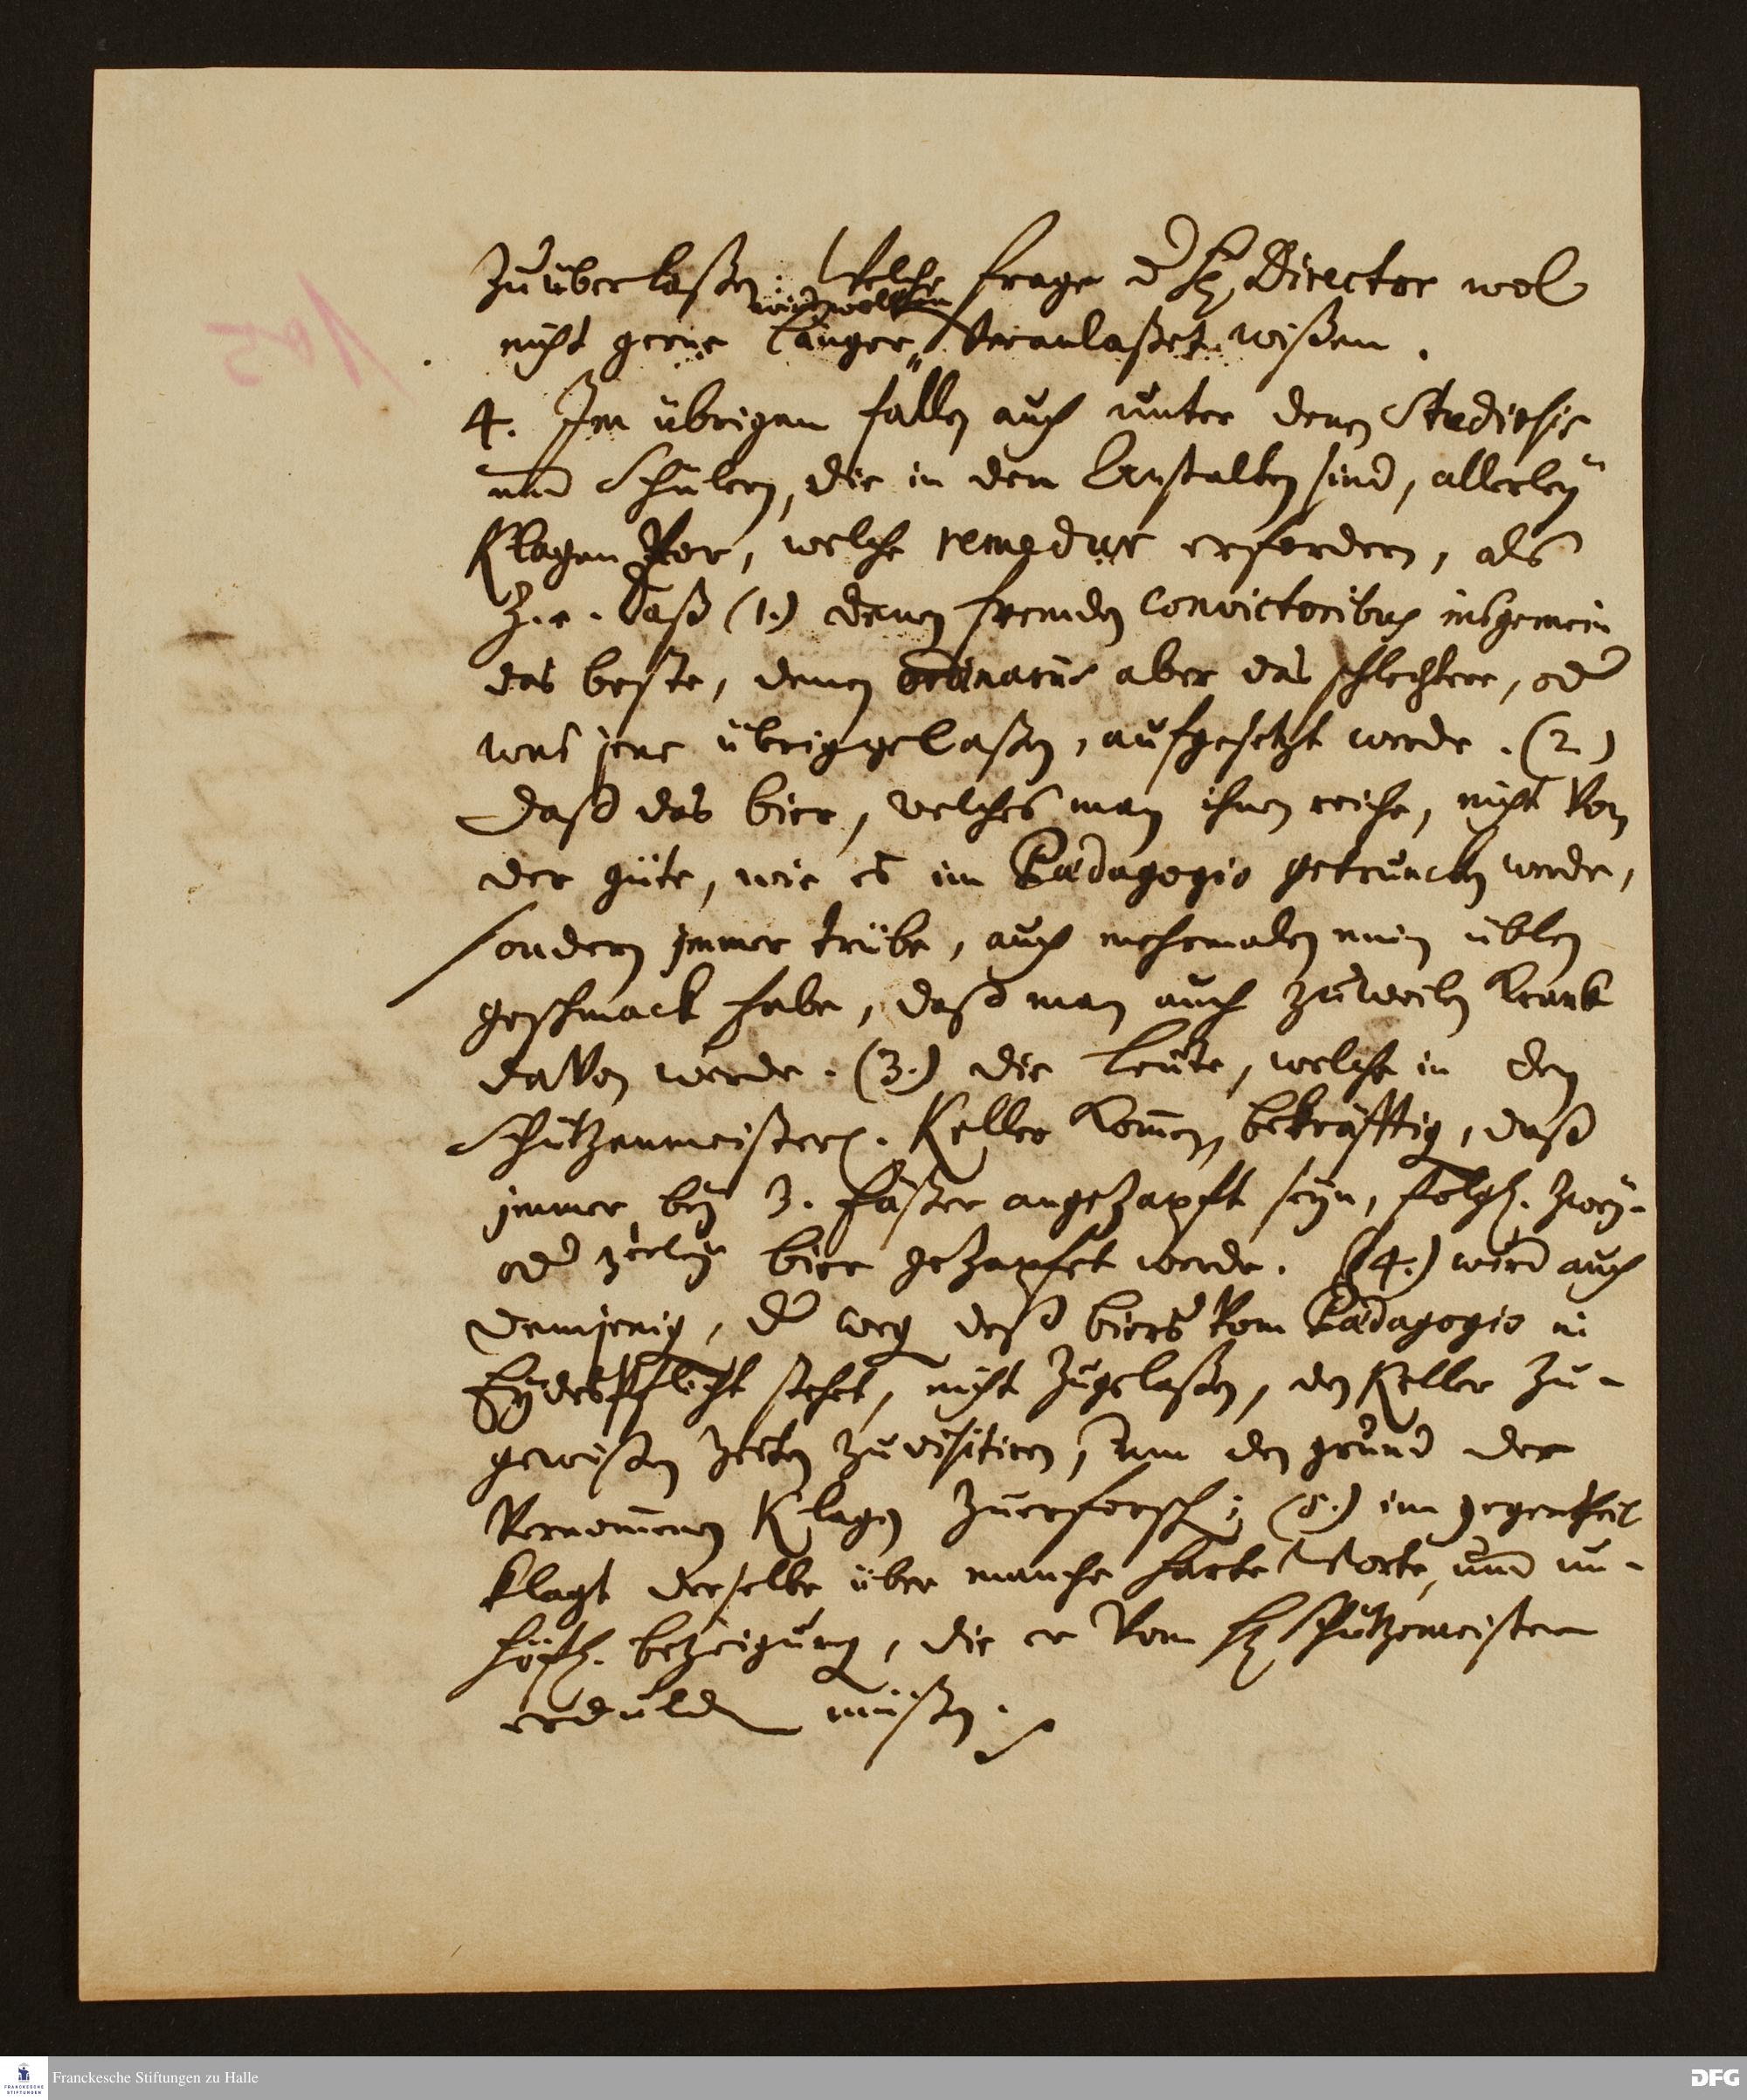 zu überlaßen. Welche frage d H. Director wol
nicht gerne länger veranlaßet wißen.
4. Im übrigen fallen auch unter denen Studiosis
und Schülern, die in den Anstalten sind, allerley
Klagen vor, welche remedur erfordern, als
z. e. daß (1.) denen fremden convictoribus insgemein
das beste, denen ordinariis aber das schlechtere, od
was jene übriggelaßen, aufgesetzt werde. (2.)
daß das bier, welches man ihnen reiche, nicht von
der güte, wie es im Paedagogio getruncken werde,
sondern immer trübe, auch mehrmalen einen üblen
geschmack habe, daß man auch zuweilen kranck
davon werde. (3.) die leute, welche in den
Schützenmeister. Keller kommen, bekräfftig, daß
immer bey 3. fäßer angezapft seyn, folgl. zwey-
od 3erley bier gezapfet werde. (4.) wird auch
demjenig, d weg deß biers vom Paedagogio in
Eydespflicht stehet, nicht zugelaßen, den Keller zu-
gewißen Zeiten zu visitiren, um den grund der
vernommenen Klagen zuerforsch; (5.) im gegentheil
klagt derselbe über manche harte Worte, und un-
höfl. bezeigung, die er vom H. Schützmeister
erdulden müßen.
105
Franckesche Stiftungen zu Halle
DFG
FRANCKESCHE
STIFTUNGEN